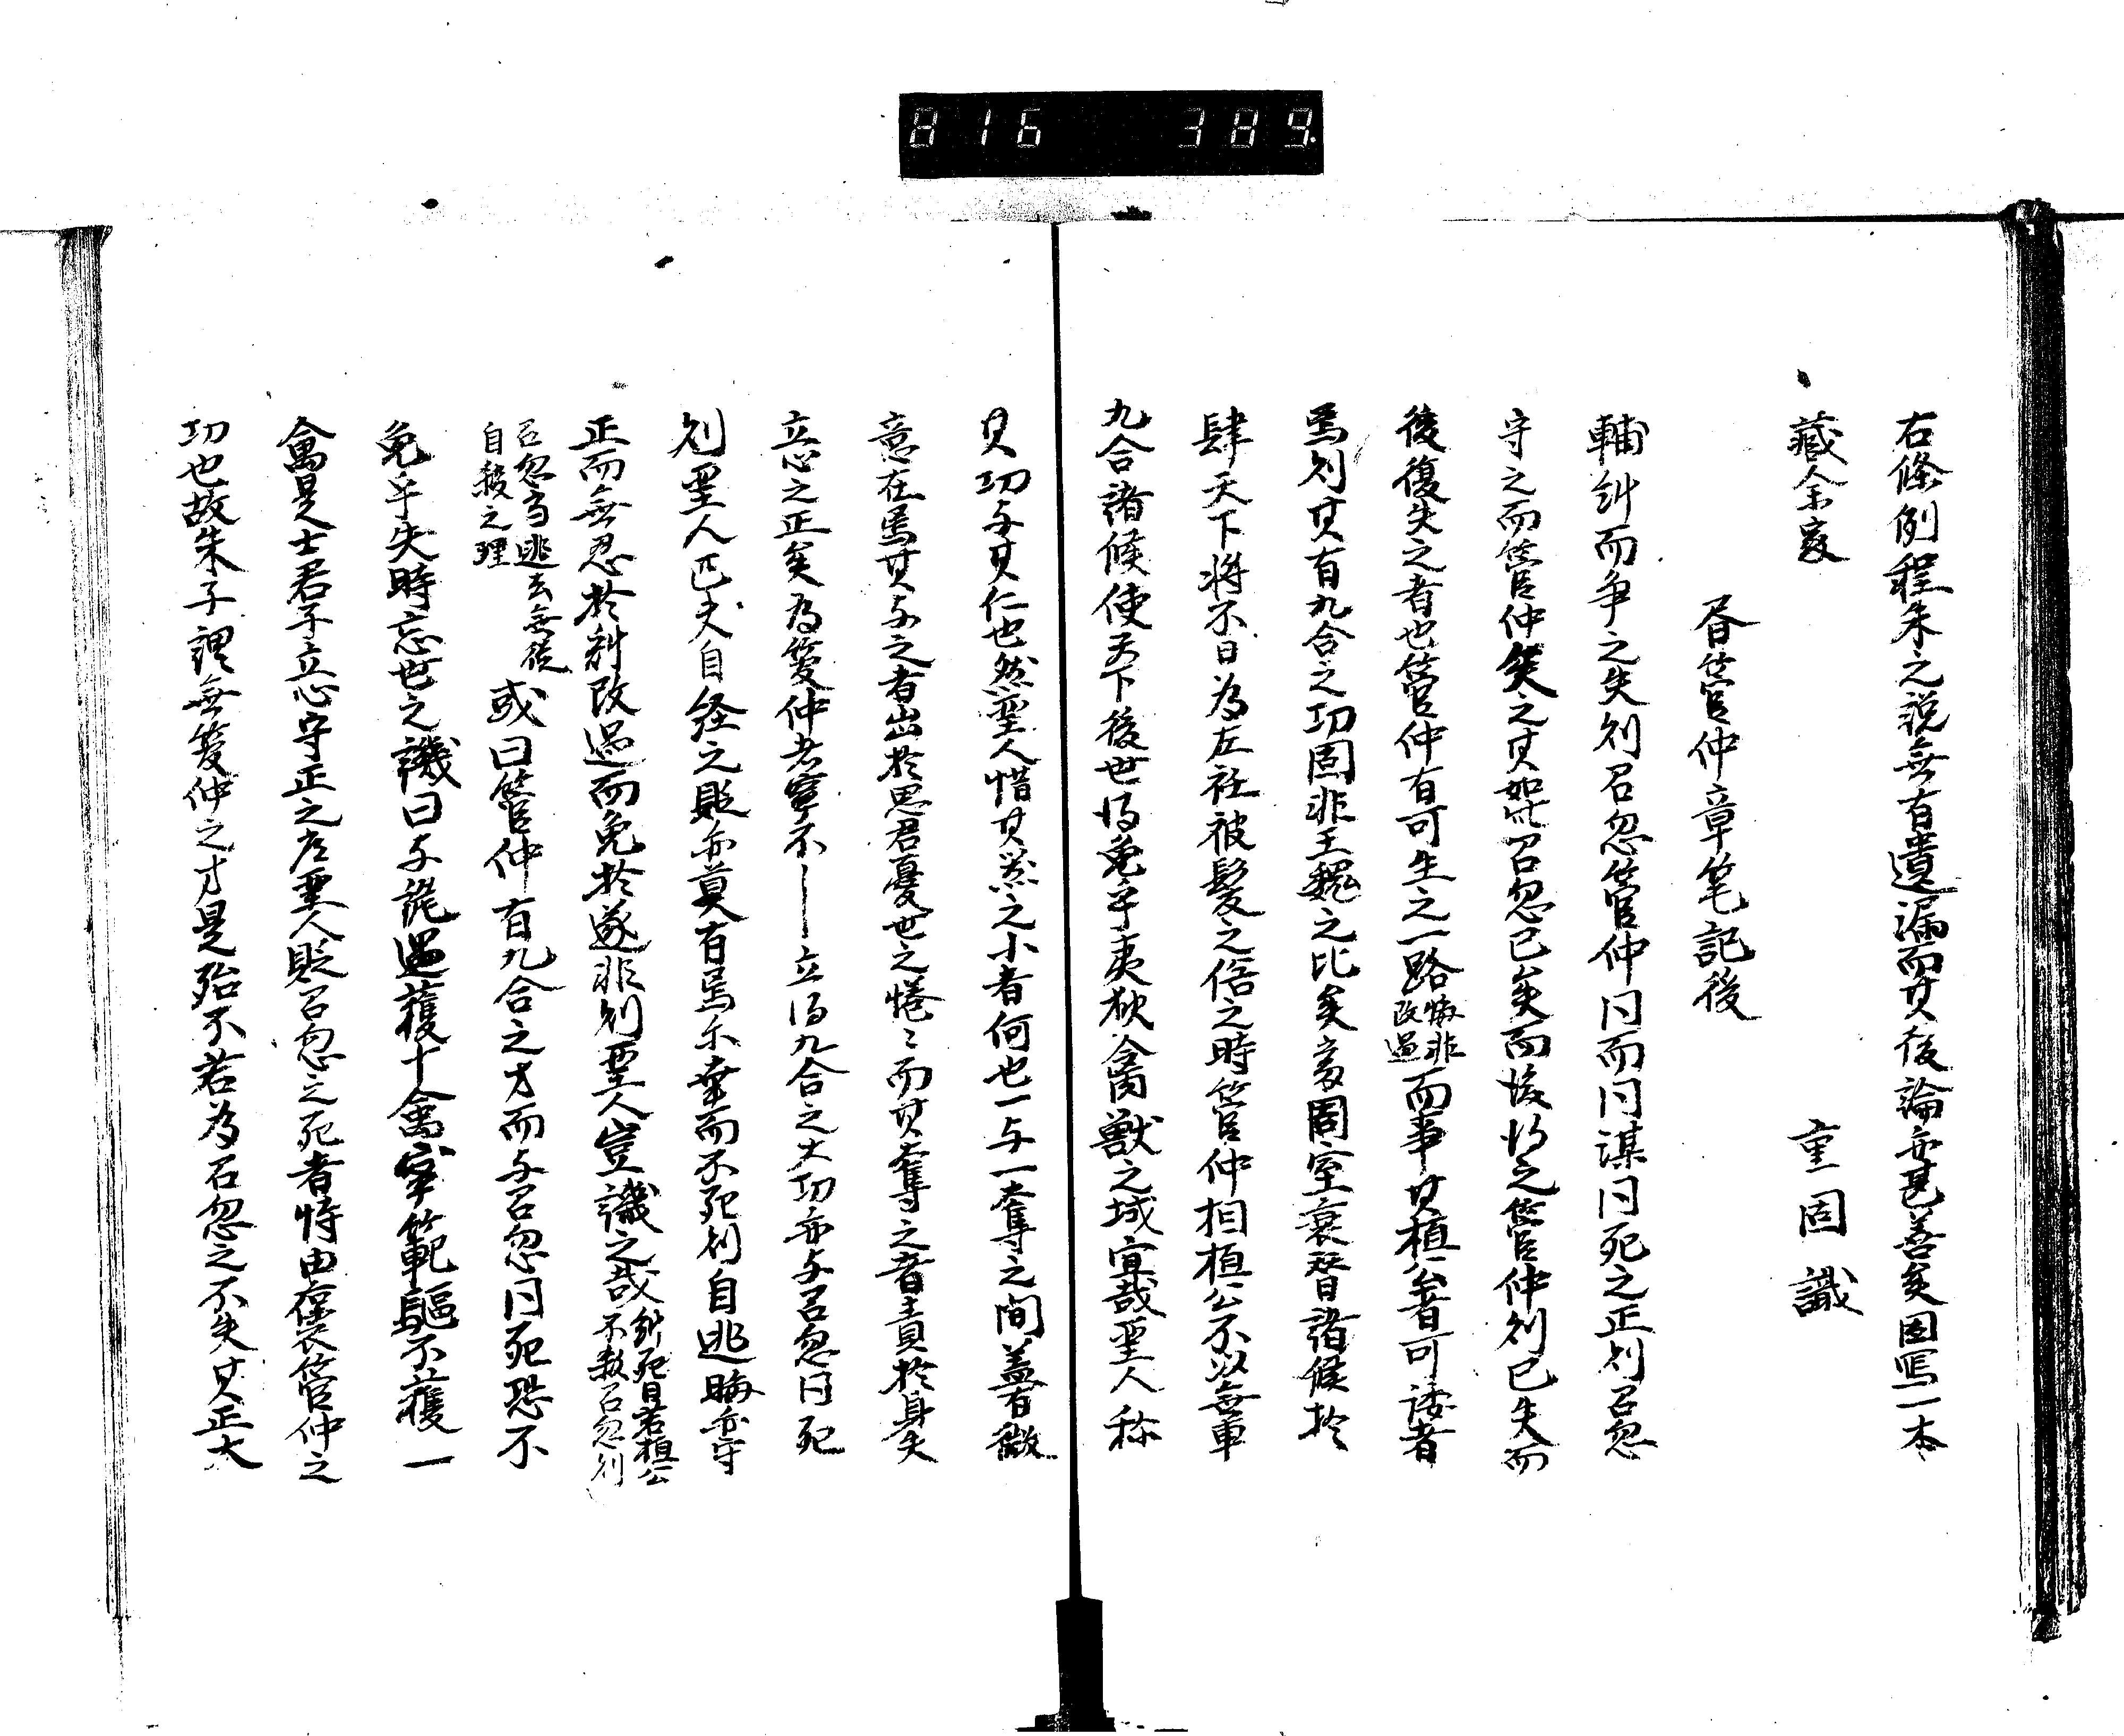 816 389
右條例程朱之説無有遺漏而其後論亦甚善矣因写一本
藏余家 重固識
管仲章筆記後
輔糾而争之失則召忽管仲同而同謀同死之正則召忽
守之而管仲失之其如此召忽已矣而後得之管仲則已失而
後復失之者也管仲有可生之一路悔非改過而事其桓公者可諉者
焉則其有九合之功固非王魏之比矣周室衰替諸侯
肆天下将不日為左衽被髪之俗之時管仲相桓公不以兵車
九合諸侯使天下後世得免乎夷狄禽獣之域宜哉聖人称
其功与其仁也然聖人惜其器之小者何也一与一奪之間蓋有微
意在焉其与之者出於思君憂世之惓〻而其奪之者責於身失
立志之正矣為管仲者寧不―立得九合之大功亦与召忽同死
則聖人匹夫自経之貶亦莫有焉不幸而不死則自逃晦亦守
正而無忍於糾改過而免於遂非則聖人豈譏之哉糾死日若桓公不殺召忽則
召忽亦逃去無徒自殺之理 或曰管仲有九合之才而与召忽同死恐不
免乎失時忘世之譏曰与詭遇獲十禽寧範驅不獲一
禽是士君子立心守正之 聖人貶召忽之死者特由褒管仲之
功也故朱子謂無管仲之才是殆不若為召忽之不失其正大